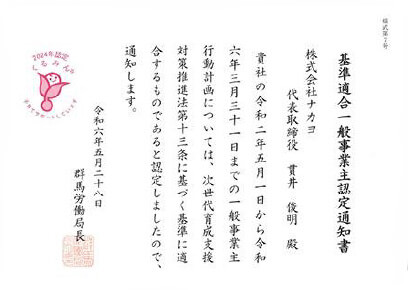 様式第7号
基準適合一般事業主認定通知書
株式会社ナカヨ
代表取締役 貫井 俊明 殿
貴社の令和二年五月一日から令和
六年三月三十一日までの一般事業主
行動計画については、次世代育成支援
対策推進法第十三条に基づく基準に適
合するものであると認定しましたので、
通知します。
令和六年五月二十八日
群馬労働局長
2024年認定
くるみん
子育てサポートしています